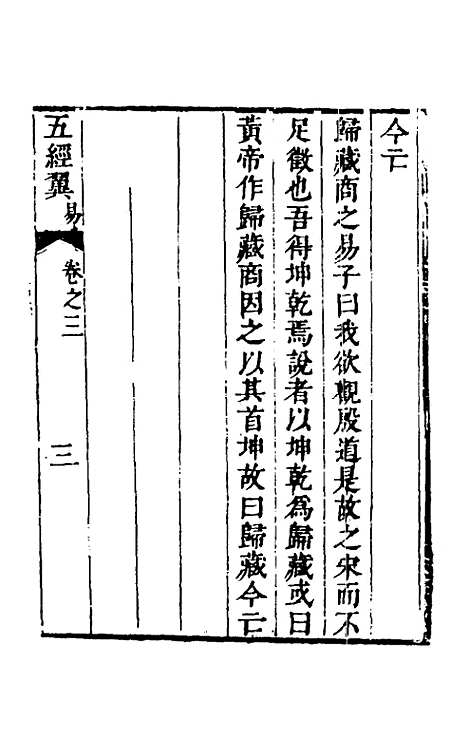 今亡
歸藏商之易子曰我欲觀殷道是故之宋而不
足徵也吾得坤乾焉說者以坤乾爲歸藏或曰
黃帝作歸藏商因之以其首坤故曰歸藏今亡
五經翼 易 卷之三 三